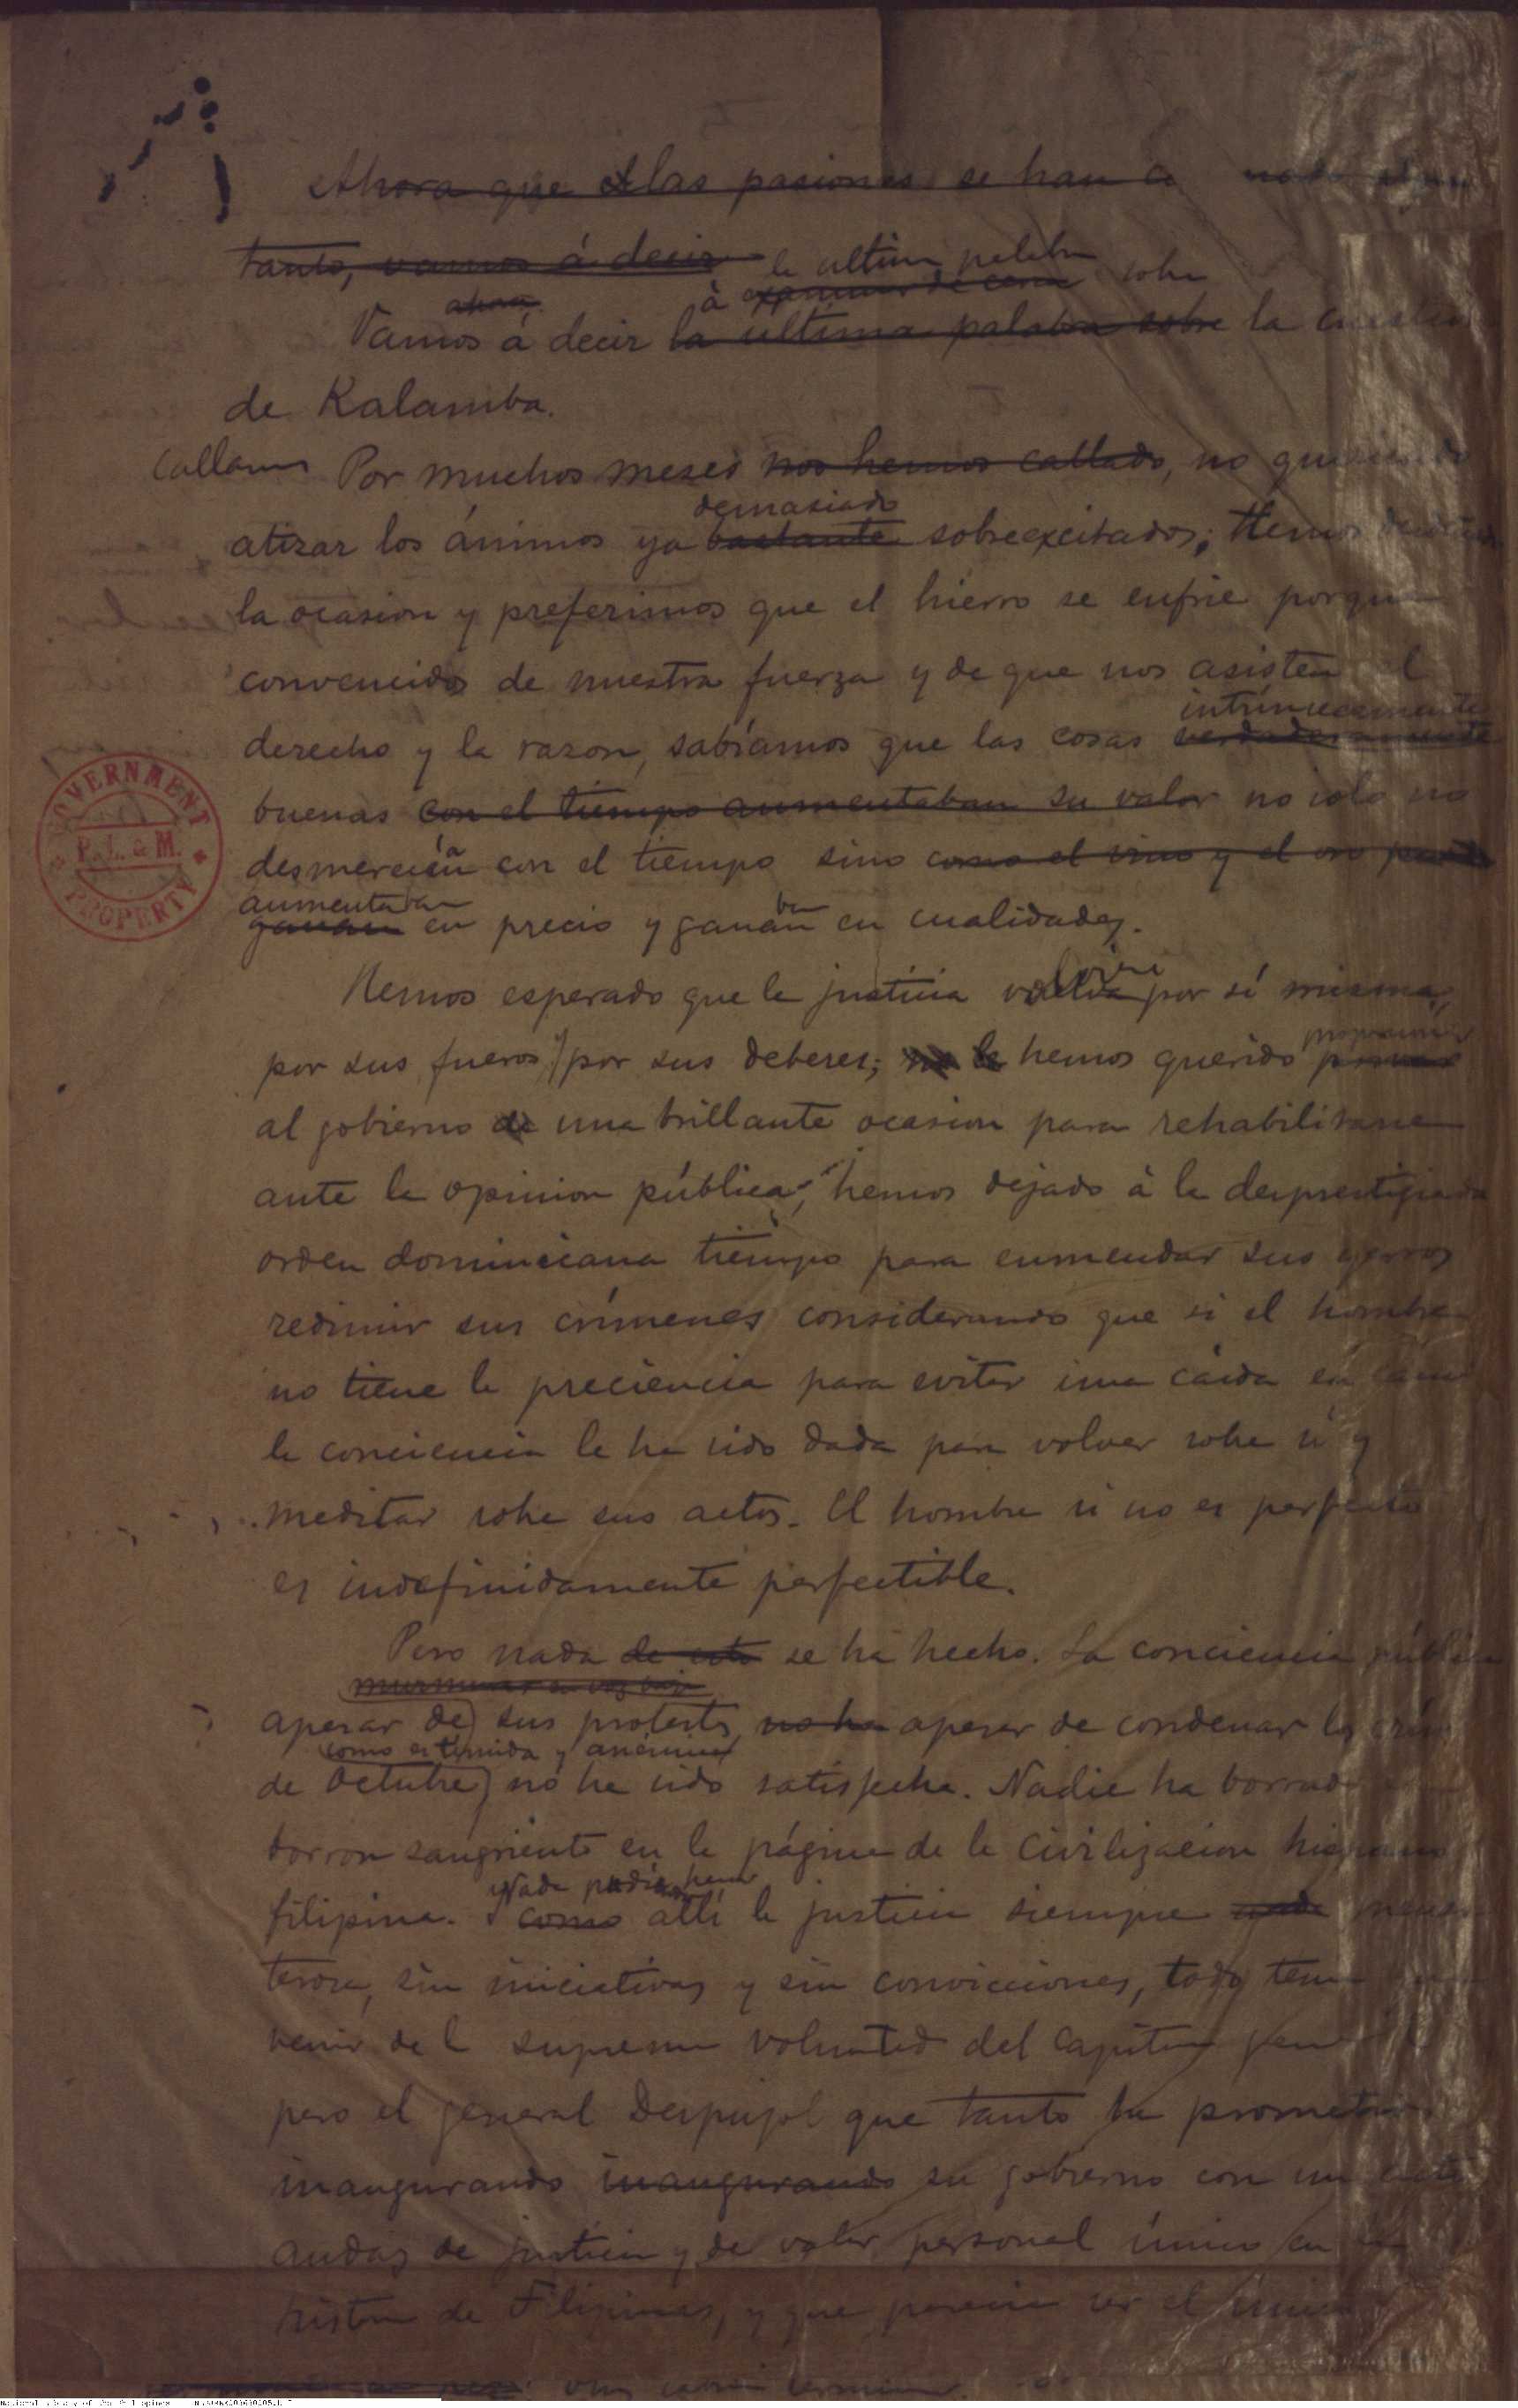 Ahora que las pasiones se han
tanto, vamos á decir
la ultima palabra
ahora á examinar de cerca sobre
Vamos á decir la ultima palabra sobre la cuestion
de Kalamba.
Callamos Por muchos meses nos hemos callado, no queriendo
demasiado
atizar los ánimos ya bastante sobreexcitados; Hemos
la ocasion y preferimos que el hierro se enfrie porque
convencidos de nuestra fuerza y de que nos asisten el
intrínsecamente
derecho y la razon, sabíamos que las cosas verdaderamente
buenas con el tiempo aumentaban su valor no solo no
desmerecían con el tiempo sino como el vino y el oro
aumentaban
ganan en precio y ganaban en cualidades.
Hemos esperado que la justicia volviese por sí misma,
por sus fueros y por sus deberes; hemos querido
al gobierno una brillante ocasion para rehabilitarse
ante la opinion pública; hemos dejado á la desprestigiada
orden dominicana tiempo para enmendar sus yerros
redimir sus crímenes considerando que si el hombre
no tiene la preciencia para evitar una caida en cambio
la conciencia le ha sido dada para volver sobre sí y
meditar sobre sus actos. El hombre si no es perfecto
es indefinidamente perfectible.
Pero nada de esto se ha hecho. La conciencia pública
murmurar en voz baja
apesar de sus protestas no ha apesar de condenar los
como es tímida y anónima
de Octubre no ha sido satisfecha. Nadie ha borrado
borron sangriento en la página de la civilizacion hispano
Nada podia hacer
filipina. como allí la justicia siempre
terosa, sin iniciativas y sin convicciones, todo
venir de la suprema voluntad del capitan
pero el general Despujol que tanto ha prometido
inaugurando inaugurando su gobierno con un
audaz de justicia y de valor personal único en la
historia de Filipinas, y que parecia ser el
GOVERNMENT
P. L. & M.
PROPERTY